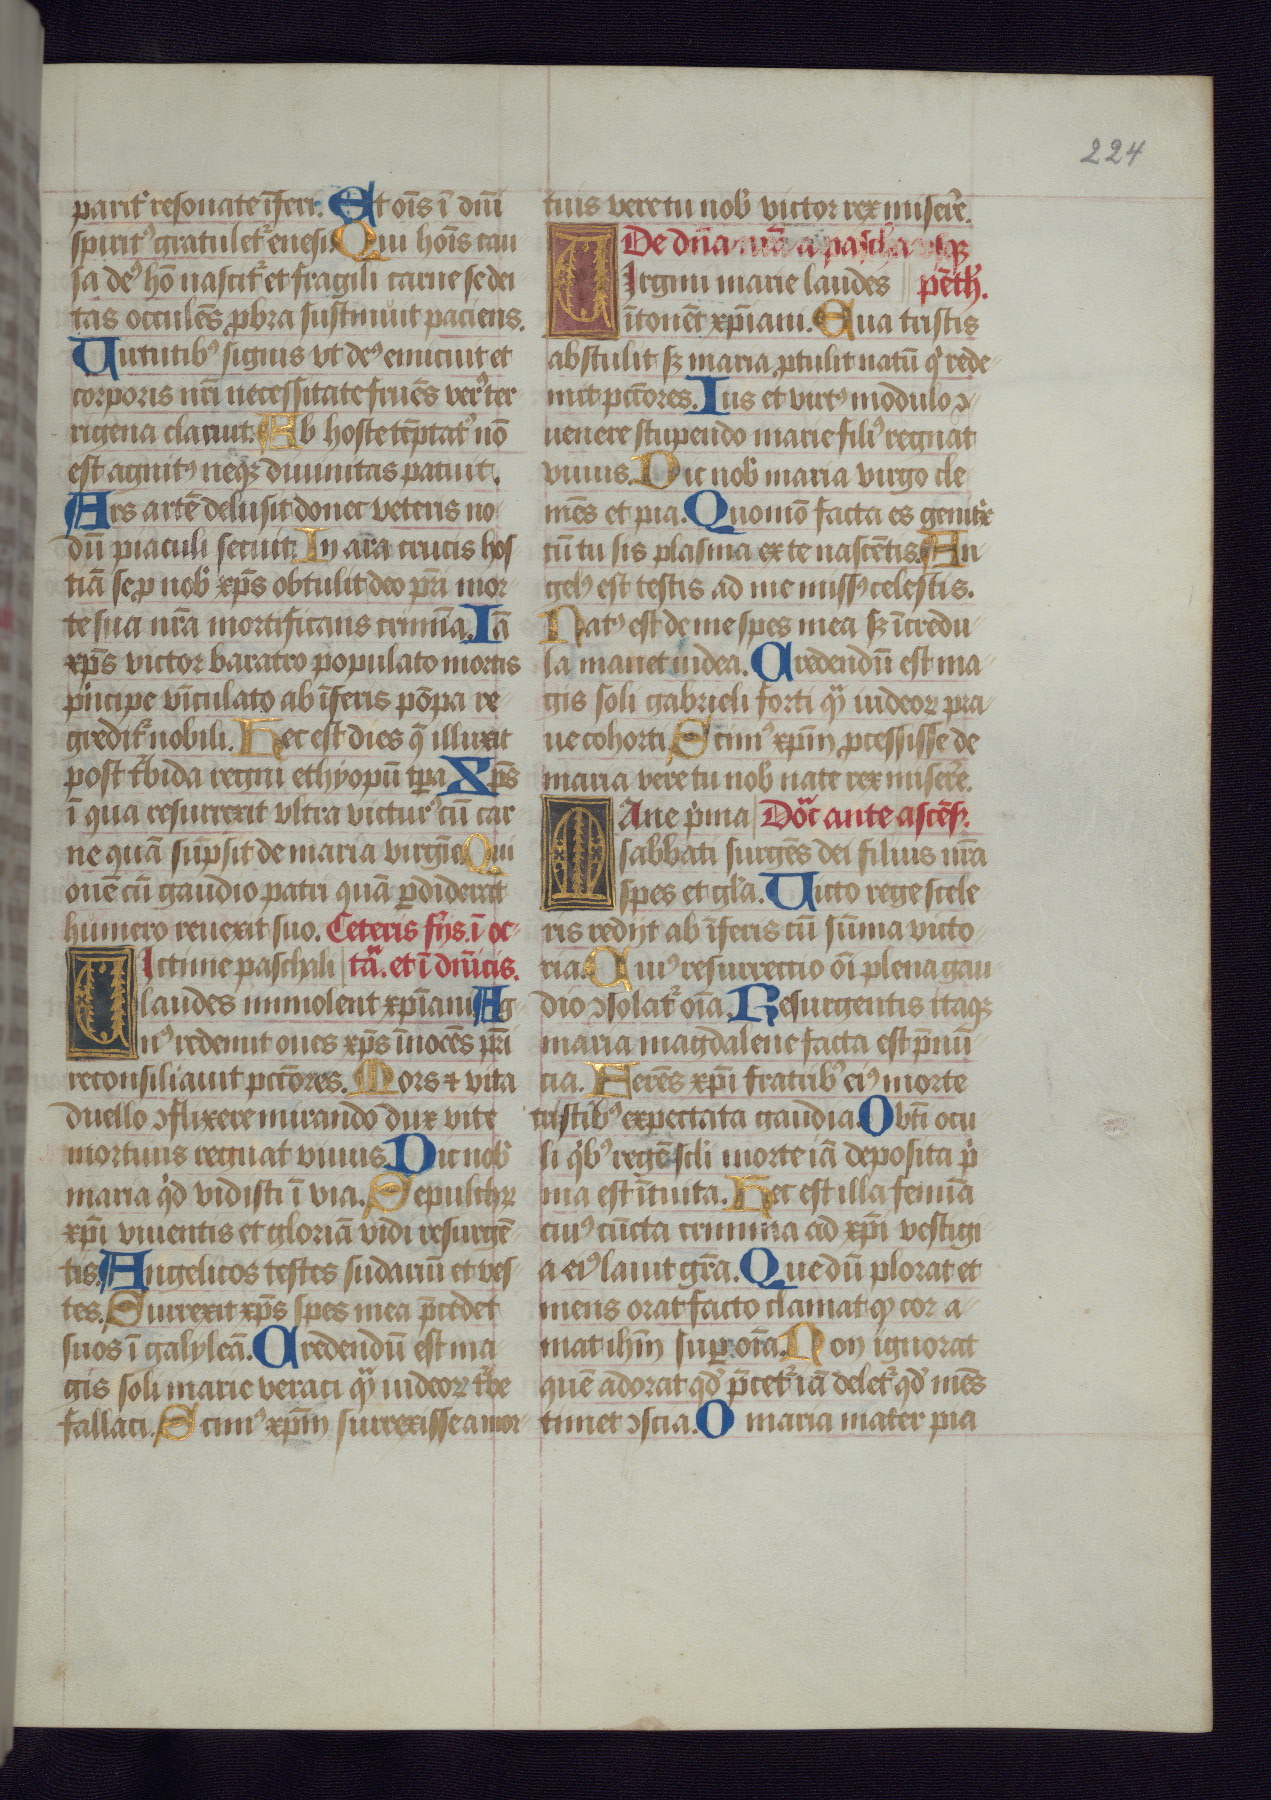 224
parit᷑ resonate īferi. Et oīs ī dn̄i
spirit᷒ gratulet᷑ enesi. Qui hoīs cau
sa de᷒ hō nascit᷑ et fragili carne se dei
tas occulēs ꝓbra sustinuit paciens.
Virtutib᷒ signis vt de᷒ emicuit et
corporis nr̄i necessitate fruēs ver᷒ ter
rigena claruit. Ab hoste tēptat᷒ nō
est agnit᷒ neqꝫ diuinitas patuit.
Ars artē delusit donec veteris no
dū piaculi secuit. In ara crucis hos
tiā se ꝓ nob̾ xp̄s obtulit deo pr̄i mor
te sua nr̄a mortificans crimīa. Iā
xp̄s victor baratro populato mortis
pͥncipe vīculato ab īferis pōpa re
gredit᷑ nobili. Hec est dies q̄ illuxit
post t᷑bida regni ethyopū tp̄a Xp̄s
ī qua resurrexit vltra victur᷒ cū car
ne quā sūpsit de maria virgīe Qui
ouē cū gaudio patri quā ꝑdiderat
humero reuexit suo. Ceteris f̄ijs. ī oc
Victime paschali tā. et ī dn̄icis.
laudes immolent xp̄iani Ag
n᷒ redemit oues xp̄s īnocēs pr̄i
reconsiliauit pct̄ores. Mors ⁊ vita
duello ↄflixere mirando dux vite
mortuus regnat viuus. Dic nob̾
maria qͥd vidisti ī via. Sepulchꝝ
xp̄i viuentis et gloriā vidi resurgē
tis. Angelicos testes sudariū et ves
tes. Surrexit xp̄s spes mea p̄cedet
suos ī galyleā. Credendū est ma
gis soli marie veraci qͣ᷒ iudeoꝝ t᷑be
fallaci. Scim᷒ xp̄m surrexisse a mor
tuis vere tu nob̾ victor rex miserē.
De dn̄a nr̄a a pascha vsqꝫ
Virgini marie laudes pēth.
ītonēt xp̄iani. Eua tristis
abstulit sꝫ maria ꝓtulit natū qͥ rede
mit pct̄ores. Ius et virt᷒ modulo ↄ
uenere stupendo marie fili᷒ regnat
viuus. Dic nob̾ maria virgo cle
mēs et pia. Quomō facta es genitͥx
cū tu sis plasma ex te nascētis. An
gel᷒ est testis ad me miss᷒ celestis.
Nat᷒ est de me spes mea sꝫ īcredu
la manet iudea. Credendū est ma
gis soli gabrieli forti qͣ᷒ iudeoꝝ pra
ue cohorti Scim᷒ xp̄m ꝓcessisse de
maria vere tu nob̾ nate rex miserē.
Mane pͥma Doīc ante ascēs᷒.
sabbati surgēs dei filius nr̄a
spes et gl̄a. Victo rege scele
ris redijt ab īferis cū sūma victo
ria. Cui᷒ resurrectio oī plena gau
dio ↄsolat᷑ oīa. Resurgentis itaqꝫ
maria magdalene facta est p̄nū
cia. Ferēs xp̄i fratrib᷒ ei᷒ morte
tristib᷒ expectata gaudia. O bt̄i ocu
li qͥb᷒ regē scl̄i morte iā deposita pͥ
ma est ītuita. Hec est illa femīa
cui᷒ cūcta crimina ad xp̄i vestigi
a ei᷒ lauit gr̄a. Que dū plorat et
mens orat facto clamat ꝙ cor a
mat ihm̄ suꝑ oīa. Non ignorat
quē adorat qd᷒ p̄cet᷑ iā delet᷑ qd᷒ mēs
timet ↄscia. O maria mater pia